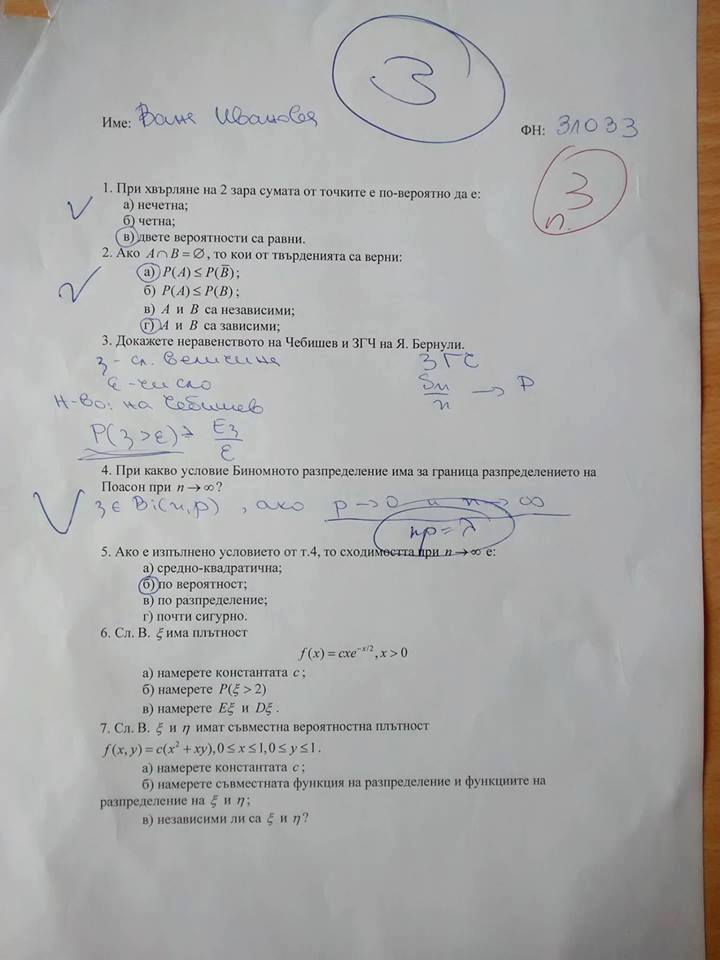 3
Име: Ваня Иванова ФН: 31033
3
п.
1. При хвърляне на 2 зара сумата от точките е по-вероятно да е:
а) нечетна;
б) четна;
в) двете вероятности са равни.
2. Ако A∩B=∅, то кои от твърденията са верни:
а) P(A) ≤ P(B̅);
б) P(A) ≤ P(B);
в) A и B са независими;
г) A и B са зависими;
3. Докажете неравенството на Чебишев и ЗГЧ на Я. Бернули.
з - сл. величина ЗГЧ
ε - число Sn/n → P
Н-во: на Чебишев
P(з>ε) Eз/ε
4. При какво условие Биномното разпределение има за граница разпределението на
Поасон при n→∞?
з ∈ Bi(n,p), ако p→0 и n→∞
np=λ
5. Ако е изпълнено условието от т.4, то сходимостта при n→∞ е:
а) средно-квадратична;
б) по вероятност;
в) по разпределение;
г) почти сигурно.
6. Сл. В. ξ има плътност
f(x) = cxe^(-x/2), x > 0
а) намерете константата c;
б) намерете P(ξ > 2)
в) намерете Eξ и Dξ.
7. Сл. В. ξ и η имат съвместна вероятностна плътност
f(x, y) = c(x² + xy), 0 ≤ x ≤ 1, 0 ≤ y ≤ 1.
а) намерете константата c;
б) намерете съвместната функция на разпределение и функциите на
разпределение на ξ и η;
в) независими ли са ξ и η?